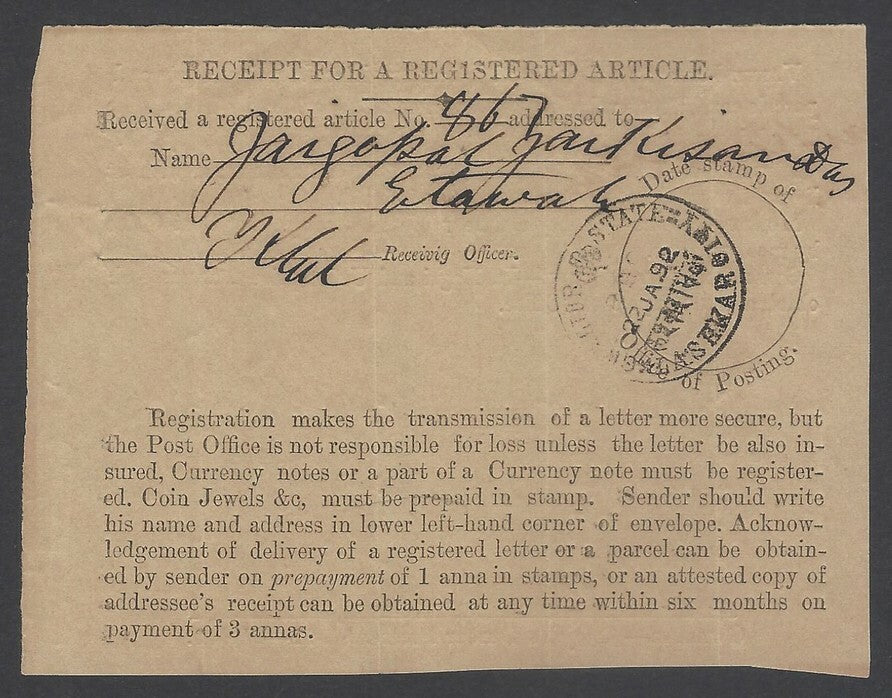 RECEIPT FOR A REGISTERED ARTICLE.
Received a registered article No. 867 addressed to
Name Jaigopal Jaikisandas
Etawah
Receivig Officer.
Date stamp of
Office of Posting.
STATE
22 JA. 92
LASHKAR
Registration makes the transmission of a letter more secure, but
the Post Office is not responsible for loss unless the letter be also in-
sured, Currency notes or a part of a Currency note must be register-
ed. Coin Jewels &c, must be prepaid in stamp. Sender should write
his name and address in lower left-hand corner of envelope. Acknow-
ledgement of delivery of a registered letter or a parcel can be obtain-
ed by sender on prepayment of 1 anna in stamps, or an attested copy of
addressee's receipt can be obtained at any time within six months on
payment of 3 annas.